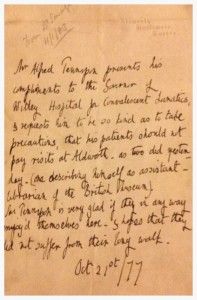 Mr Alfred Tennyson presents his
compliments to the Governor of
Witley Hospital for Convalescent Lunatics,
& requests him to be so kind as to take
precautions, that his patients should not
pay visits at Aldworth, as two did yester-
day. (one describing himself as assistant-
librarian of the British Museum)
Mr Tennyson is very glad if they in any way
enjoy'd themselves here & hopes that they
did not suffer from their long walk.
Oct 21st/77